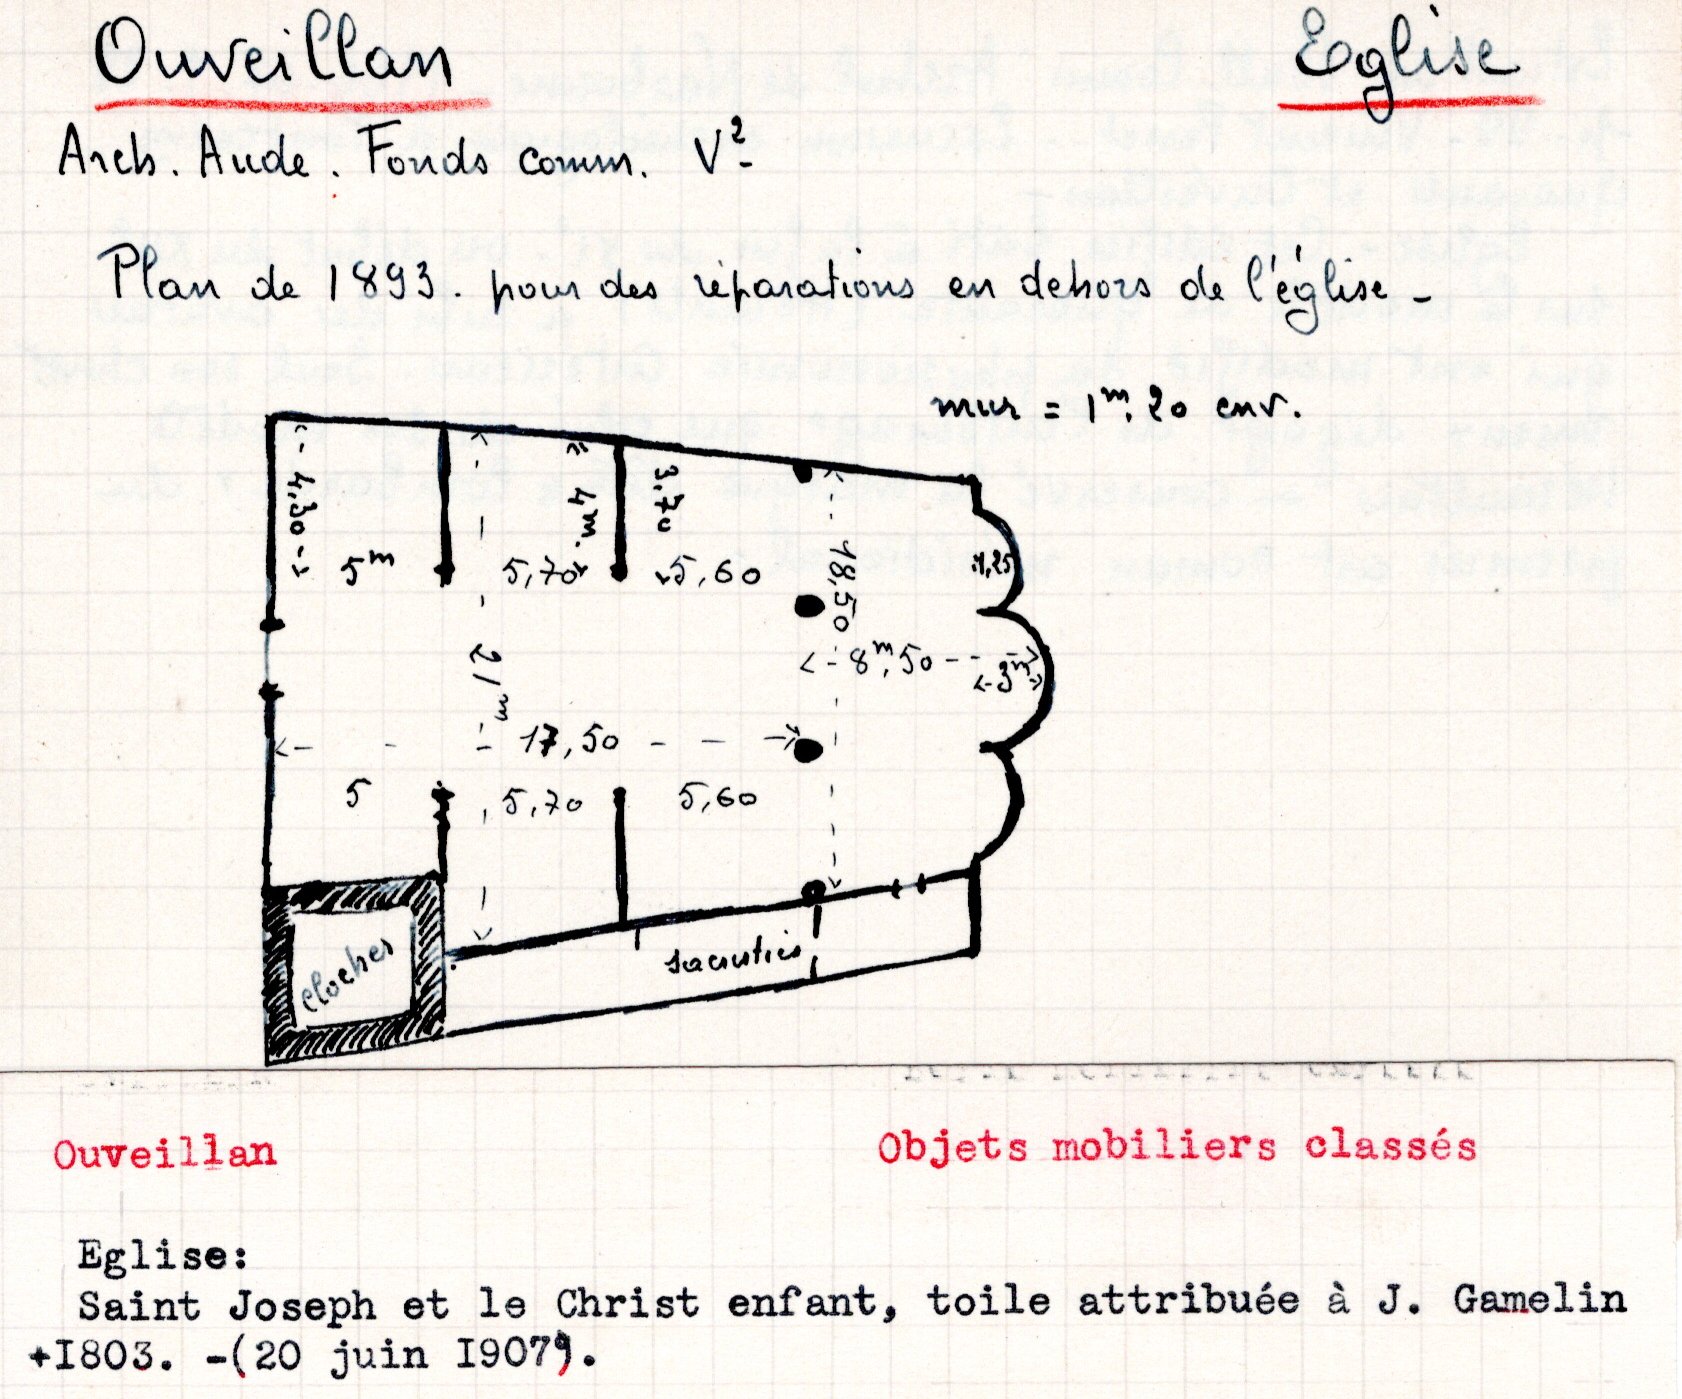 Ouveillan Eglise
Arch. Aude. Fonds comm. V²
Plan de 1893. pour des réparations en dehors de l'église -
mur = 1m,20 env.
4,30
5m
21m
5,70
4m.
3,70
5,60
18,50
1,25
8m,50
3m
17,50
5
5,70
5,60
clocher
sacristies
Ouveillan Objets mobiliers classés
Eglise:
Saint Joseph et le Christ enfant, toile attribuée à J. Gamelin
+I803. -(20 juin I907).